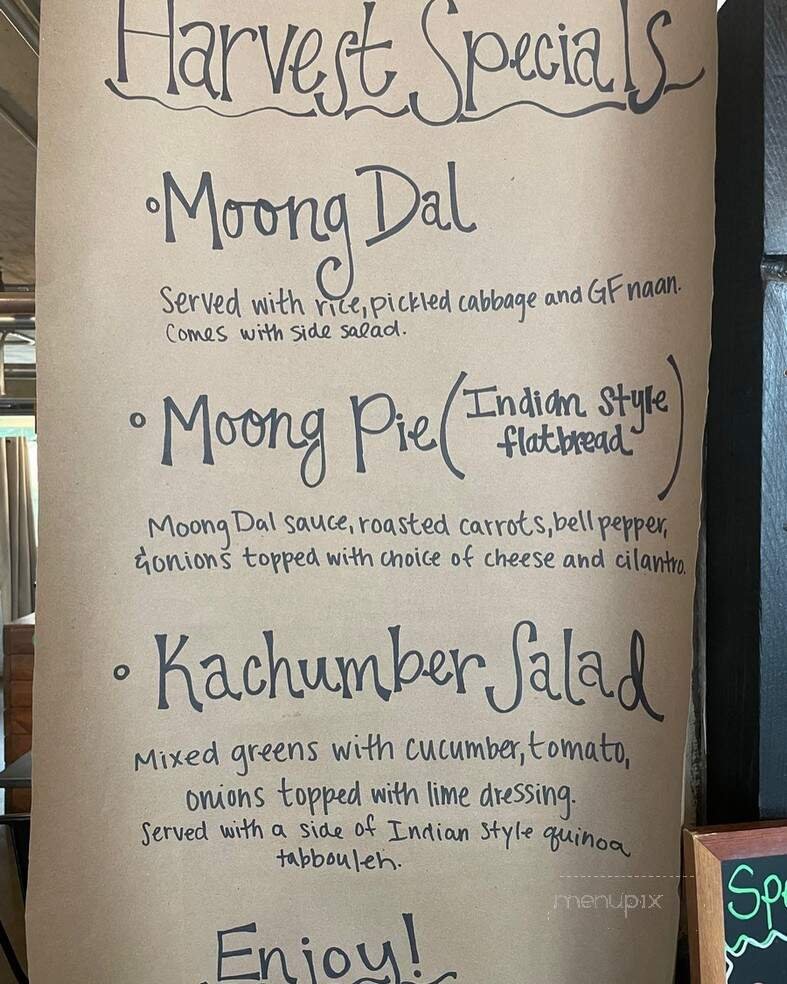 Harvest Specials
Moong Dal
Served with rice, pickled cabbage and GF naan.
Comes with side salad.
Moong Pie (Indian Style
flatbread)
Moong Dal sauce, roasted carrots, bell pepper,
& onions topped with choice of cheese and cilantro.
Kachumber Salad
Mixed greens with cucumber, tomato,
onions topped with lime dressing.
Served with a side of Indian Style quinoa
tabbouleh.
menupix
Enjoy!